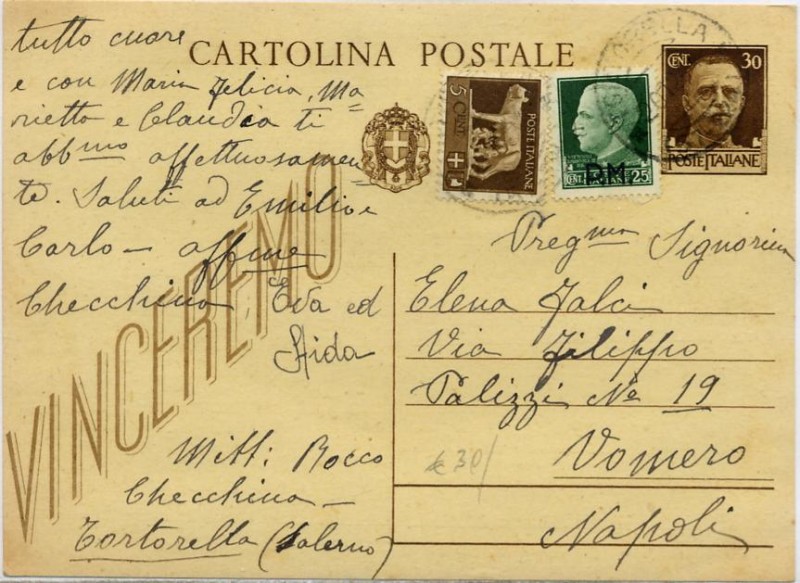 CARTOLINA POSTALE
tutto cuore
e con Maria Felicia, Ma
rietta e Claudia ti
abb.mo affettuosamen
te. Saluti ad Emilio e
Carlo - aff.me
Checchina Eva ed
Aida
VINCEREMO
Mitt: Rocco
Checchina -
Tortorella (Salerno)
5 CENT
POSTE ITALIANE
P.M.
CENT. 25
CENT. 30
POSTE ITALIANE
Preg.ma Signorina
Elena Falci
Via Filippo
Palizzi No 19
Vomero
Napoli
€ 30/